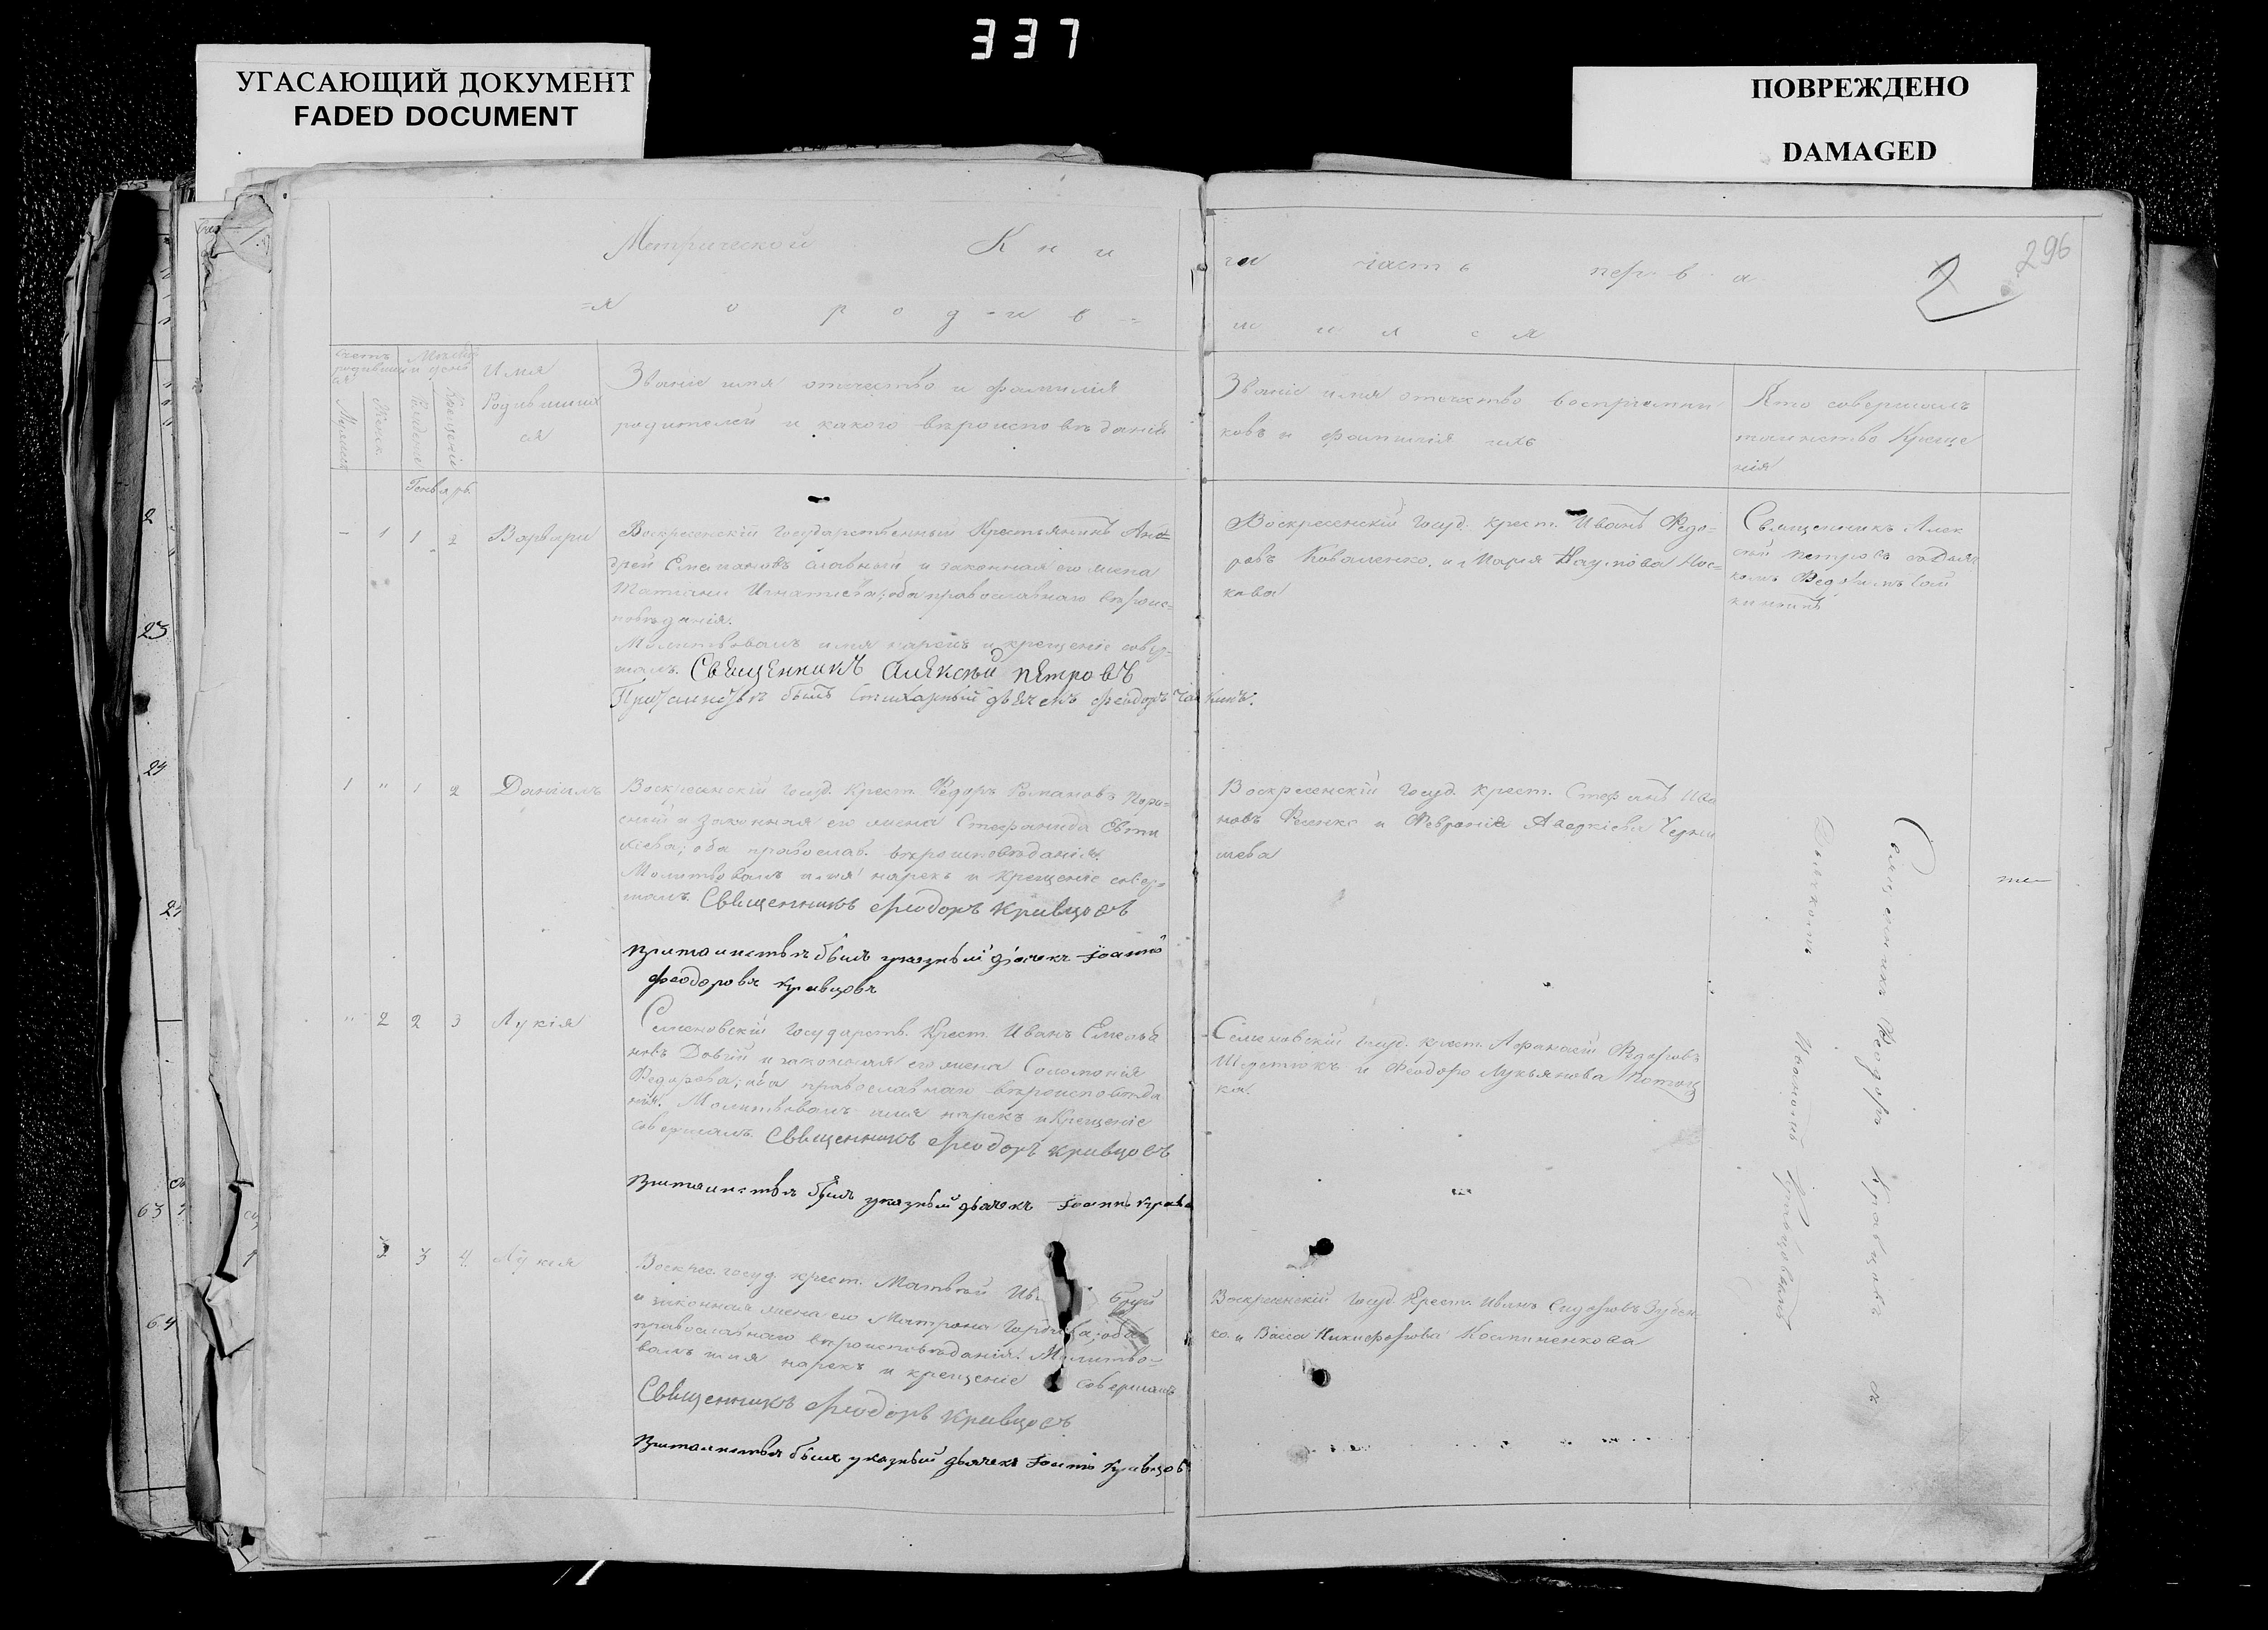 337
УГАСАЮЩИЙ ДОКУМЕНТ
FADED DOCUMENT
ПОВРЕЖДЕНО
DAMAGED
296
2
Метрической Кни
ги часть перва
=я о родив=
шихся
Счетъ родившихся
Мужеск
Женск
Месяцъ и день
Рожденія
Крещенія
Имя
Родивших
ся
Званіе имя отчество и фамилія
родителей и какого вѣроисповѣданія
Званіе имя отечество воспріемни
ковъ и фамилія ихъ
Кто совершалъ
таинство Креще
нія
Генварь
- 1 1 2 Варвари
Воскресенскій Государственный Крестьянинъ Анд=
рей Степановъ Славный и законная его жена
Татіана Игнатіева; оба православнаго вѣроис=
повѣданія.
Молитвовалъ имя нарекъ и крещеніе совер=
шалъ. Священникъ Алексѣй Петровъ
При таинствѣ былъ Стихарный дьячекъ Феодоръ Чайкинъ.
Воскресенскій Госуд. крест. Иванъ Федо=
ровъ Коваленко, и Марія Наумова Нос=
кова
Священникъ Алек
сѣй Петровъ съ Дьяч
комъ Федоромъ Чай
кинымъ
1 " 1 2 Даніилъ
Воскресенскій Госуд. Крест. Федоръ Романовъ
и Законная его жена Стефанида Евти
хіева; оба православ. вѣроисповѣданія.
Молитвовалъ имя нарекъ и крещеніе совер=
шалъ. Священникъ Феодоръ Кривцовъ
При таинствѣ былъ указный дьячекъ Іоаннъ
Феодоровъ Кривцовъ
Воскресенскій Госуд. Крест. Стефанъ Ива
новъ Фесенко и Февронія Аверкіева Черны
шева
" 2 2 3 Лукія
Семеновскій Государств. Крест. Иванъ Емелья
новъ Довгій и законная его жена Соломонія
Федорова; оба православнаго вѣроисповѣда
нія. Молитвовалъ имя нарекъ и Крещеніе
совершалъ. Священникъ Феодоръ Кривцовъ
При таинствѣ былъ указный дьячекъ Іоаннъ Кривц
Семеновскій Госуд. крест. Афанасій Федоровъ
и Феодора Лукьянова Потоц
ка.
3 3 4 Лукія
Воскрес. госуд. крест. Матвѣй Ив
и законная жена его Матрона; оба
православнаго вѣроисповѣданія. Молитво=
валъ имя нарекъ и крещеніе совершалъ
Священникъ Феодоръ Кривцовъ
При таинствѣ былъ указный дьячекъ Іоаннъ Кривцовъ
Воскресенскій Госуд. Крест. Иванъ Сидоровъ Зубен
ко и Васса Никифорова
Священникъ Феодоръ Кривцовъ съ
Дьячкомъ Иваномъ Кривцовымъ